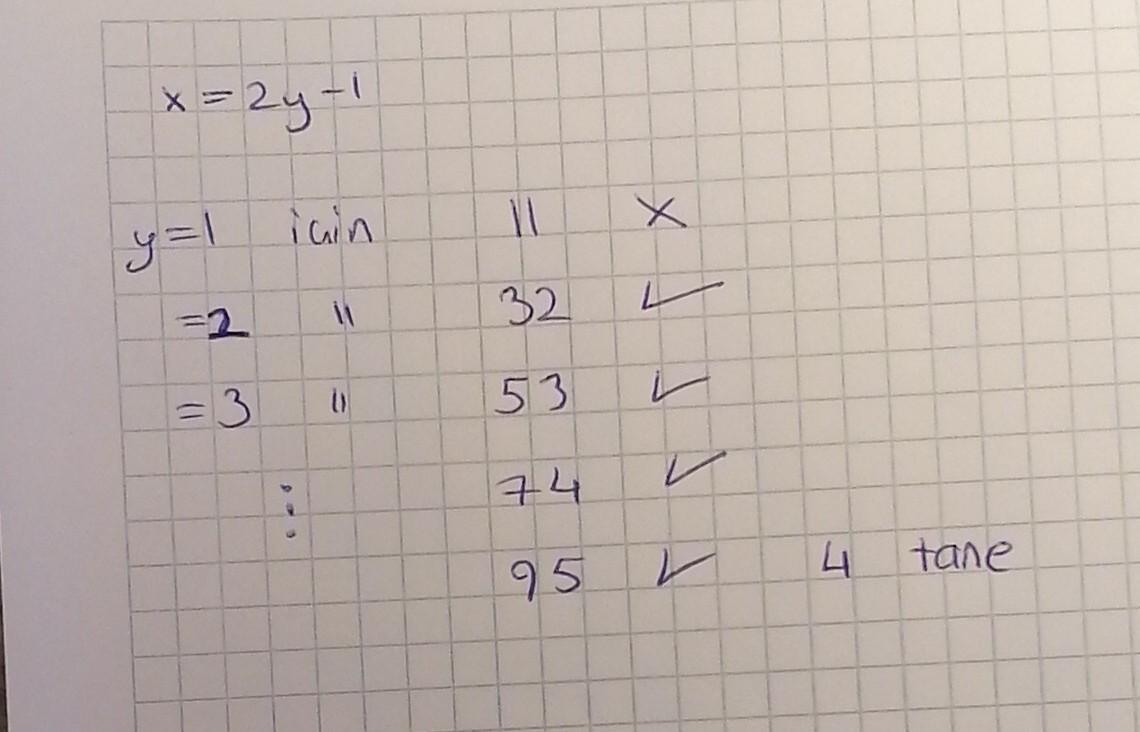 x = 2y - 1
y = 1 için 11 x
= 2 " 32 ✓
= 3 " 53 ✓
⋮ 74 ✓
95 ✓ 4 tane